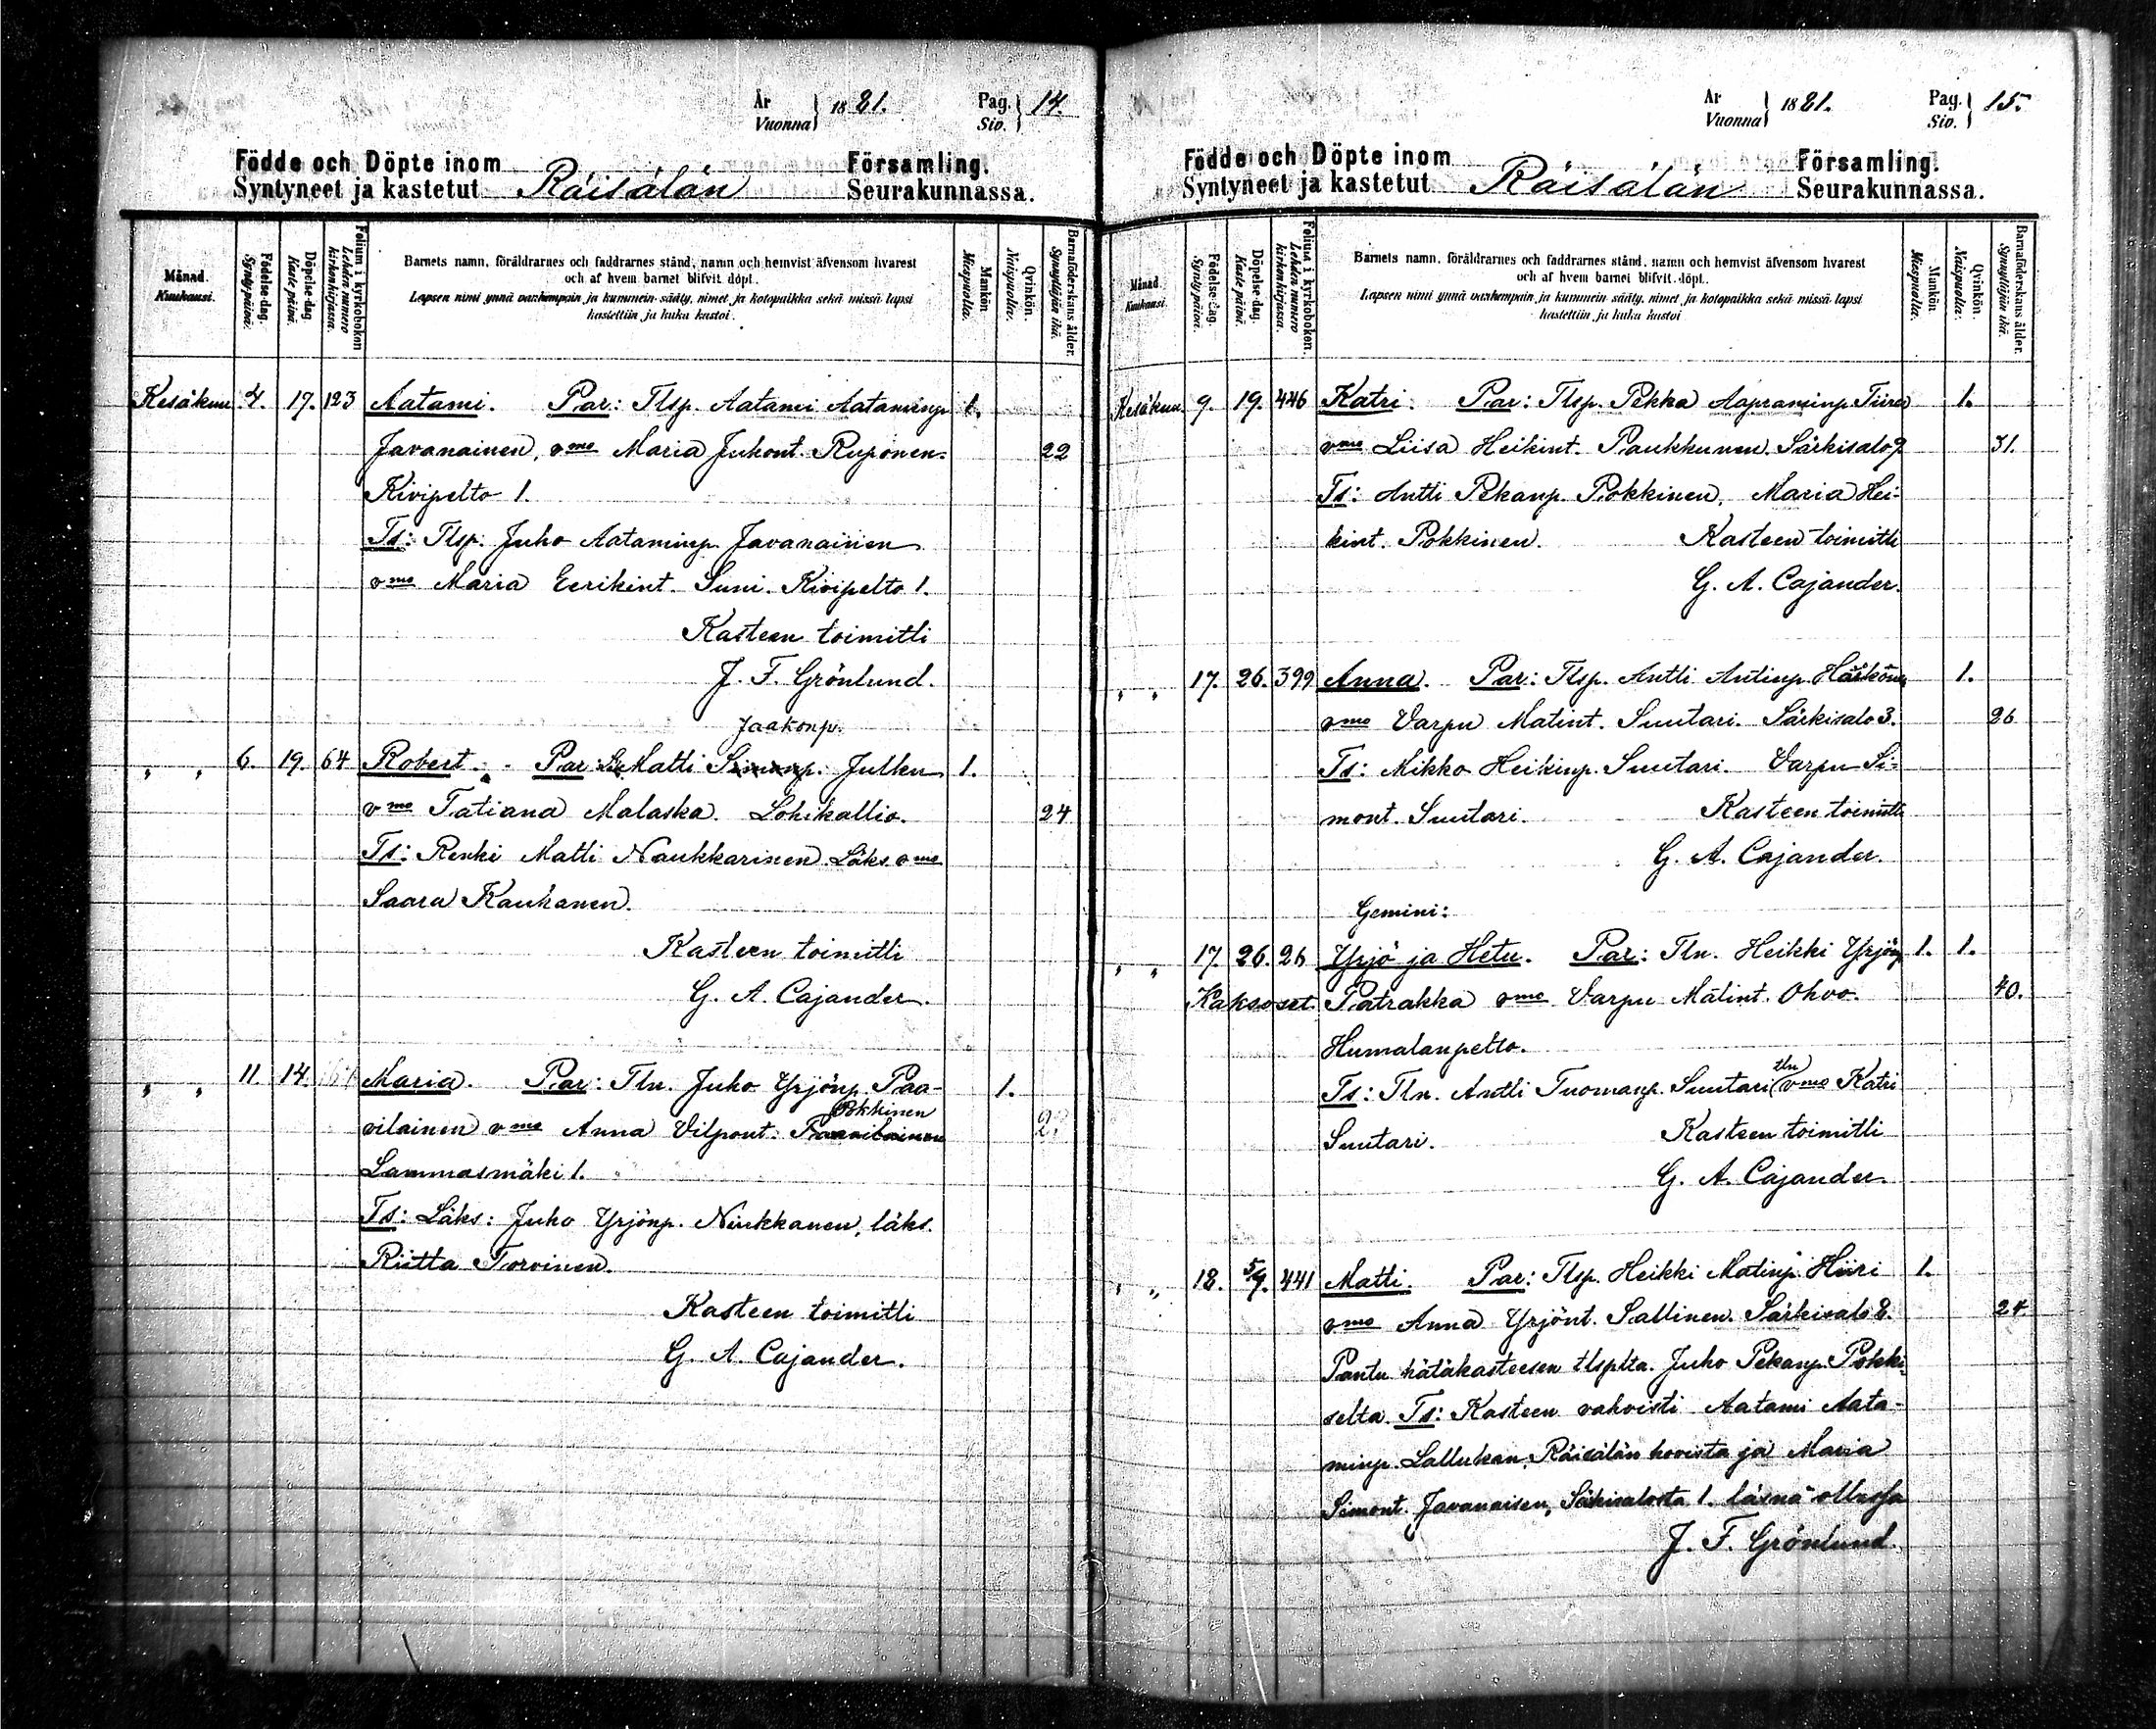 År
Vuonna } 1881. Pag.
Siv. } 14.
Födde och Döpte inom Församling.
Syntyneet ja kastetut Räisälän Seurakunnassa.
Månad.
Kuukausi.
Födelse-dag.
Syntypäivä.
Döpelse-dag.
Kastepäivä.
Folium i kyrkoboken
Lehden numero
kirkonkirjassa.
Barnets namn, föräldrarnes och faddrarnes stånd, namn och hemvist äfvensom hvarest
och af hvem barnet blifvit döpt.
Lapsen nimi ynnä vanhempain ja kummein sääty, nimet ja kotopaikka sekä missä lapsi
kastettiin ja kuka kastoi.
Mankön
Miespuolia.
Qvinkön.
Naispuolia.
Barnaföderskans ålder.
Synnyttäjän ikä.
Kesäkuu 4. 17. 123 Aatami. Par: Tlsp. Aatami Aataminp 1.
Javanainen, vmo Maria Juhont. Ruponen. 22
Kivipelto 1.
Ts: Tlsp. Juho Aataminp. Javanainen
vmo Maria Eerikint. Suni. Kivipelto 1.
Kasteen toimitti
J. F. Grönlund.
Jaakonp.
" " 6. 19. 64 Robert. Par: Matti Simonp. Julku 1.
vmo Tatiana Malaska. Lohikallio. 24
Ts: Renki Matti Naukkarinen. Läks. vmo
Saara Kauhanen.
Kasteen toimitti
G. A. Cajander.
" " 11. 14. Maria. Par: Tln. Juho Yrjönp. Paa- 1.
Pokkinen
vilainen vmo Anna Vilpont. Paavilainen
Lammasmäki 1.
Ts: Läks: Juho Yrjönp. Ninkkanen, läks.
Riitta Torvinen.
Kasteen toimitti
G. A. Cajander.
År
Vuonna } 1881. Pag.
Siv. } 15.
Födde och Döpte inom Församling.
Syntyneet ja kastetut Räisälän Seurakunnassa.
Månad.
Kuukausi.
Födelse-dag.
Syntypäivä.
Döpelse-dag.
Kastepäivä.
Folium i kyrkoboken.
Lehden numero
kirkonkirjassa.
Barnets namn, föräldrarnes och faddrarnes stånd, namn och hemvist äfvensom hvarest
och af hvem barnet blifvit döpt.
Lapsen nimi ynnä vanhempain ja kummein sääty, nimet ja kotopaikka sekä missä lapsi
kastettiin ja kuka kastoi
Mankön
Miespuolia.
Qvinkön.
Naispuolia.
Barnaföderskans ålder.
Synnyttäjän ikä.
Kesäkuu 9. 19. 446 Katri. Par: Tlsp. Pekka Aapraminp. Tiira 1.
vmo Liisa Heikint. Paukkunen. Särkisalo 9 31.
Ts: Antti Pekanp. Pokkinen, Maria Hei-
kint. Pokkinen. Kasteen toimitti
G. A. Cajander.
" " 17. 26. 399 Anna. Par: Tlsp. Antti Antinp. Härkönen 1.
vmo Varpu Matint. Suutari. Särkisalo 3. 26
Ts: Mikko Heikinp. Suutari. Varpu Si-
mont. Suutari. Kasteen toimitti
G. A. Cajander.
Gemini:
" " 17. 26. 26 Yrjö ja Hetu. Par: Tln. Heikki Yrjönp 1. 1.
Kaksoset. Patrakka vmo Varpu Matint. Ohvo. 40.
Humalanpelto.
tln
Ts: Tln. Antti Tuomanp. Suutari vmo Katri
Suutari. Kasteen toimitti
G. A. Cajander.
" " 18. 5/9. 441 Matti. Par: Tlsp. Heikki Matinp. Hiiri 1.
vmo Anna Yrjönt. Sallinen. Särkisalo 8. 24
Pantu hätäkasteesen tlsplta. Juho Pekanp. Pokki-
selta. Ts: Kasteen vahvisti Aatami Aata-
minp. Lallukan, Räisälän hovista ja Maria
Simont. Javanaisen, Säkisalosta 1. läsnä ollessa
J. F. Grönlund.